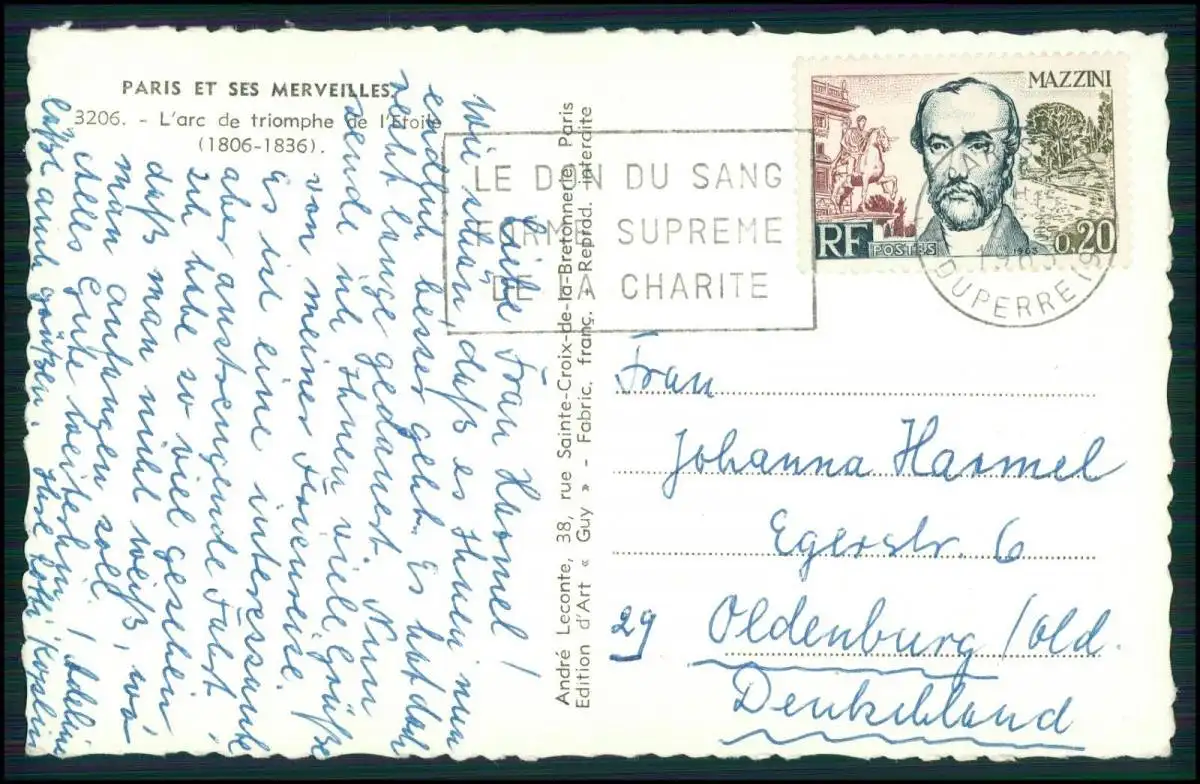 PARIS ET SES MERVEILLES
3206. - L'arc de triomphe de l'Etoile
(1806-1836).
Liebe Frau Harmel!
Wie stehts, daß es Ihnen nun
endlich besser geht. Es hat doch
recht lange gedauert. Nun
sende ich Ihnen viele Grüße
von meiner Ferienreise.
Es ist eine interessante
aber anstrengende Fahrt.
Ich habe so viel gesehen
daß man nicht weiß, wo
man anfangen soll.
Alles Gute weiterhin!
läßt auch grüßen. Ihre
André Leconte, 38, rue Sainte-Croix-de-la-Bretonnerie, Paris
Edition d'Art « Guy » - Fabric. franç. Reprod. interdite
LE DON DU SANG
FORME SUPREME
DE LA CHARITE
MAZZINI
RF POSTES 1963 0.20
DUPERRE (9
Frau
Johanna Harmel
Egerstr. 6
29 Oldenburg/Old.
Deutschland